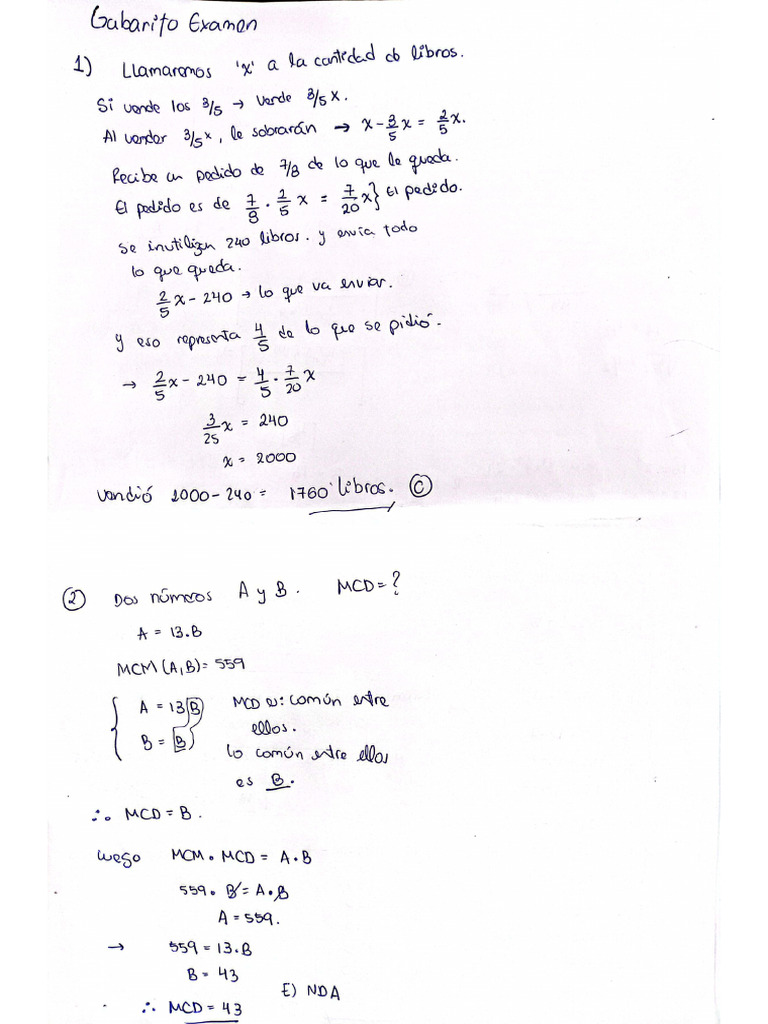 Gabarito Examen
1) Llamaremos 'x' a la cantidad de libros.
Si vende los 3/5 → vende 3/5 x.
Al vender 3/5 x, le sobrarán → x - 3/5 x = 2/5 x.
Recibe un pedido de 7/8 de lo que le queda.
El pedido es de 7/8 · 2/5 x = 7/20 x } El pedido.
se inutilizan 240 libros. y envía todo
lo que queda.
2/5 x - 240 → lo que va enviar.
y eso representa 4/5 de lo que se pidió.
→ 2/5 x - 240 = 4/5 · 7/20 x
3/25 x = 240
x = 2000
vendió 2000 - 240 = 1760 libros. Ⓒ
② Dos números A y B. MCD = ?
A = 13.B
MCM (A,B) = 559
{ A = 13 B MCD es: común entre
ellos.
B = B lo común entre ellos
es B.
∴ MCD = B.
luego MCM . MCD = A . B
559 . B = A . B
A = 559.
→ 559 = 13.B
B = 43
E) NDA
∴ MCD = 43